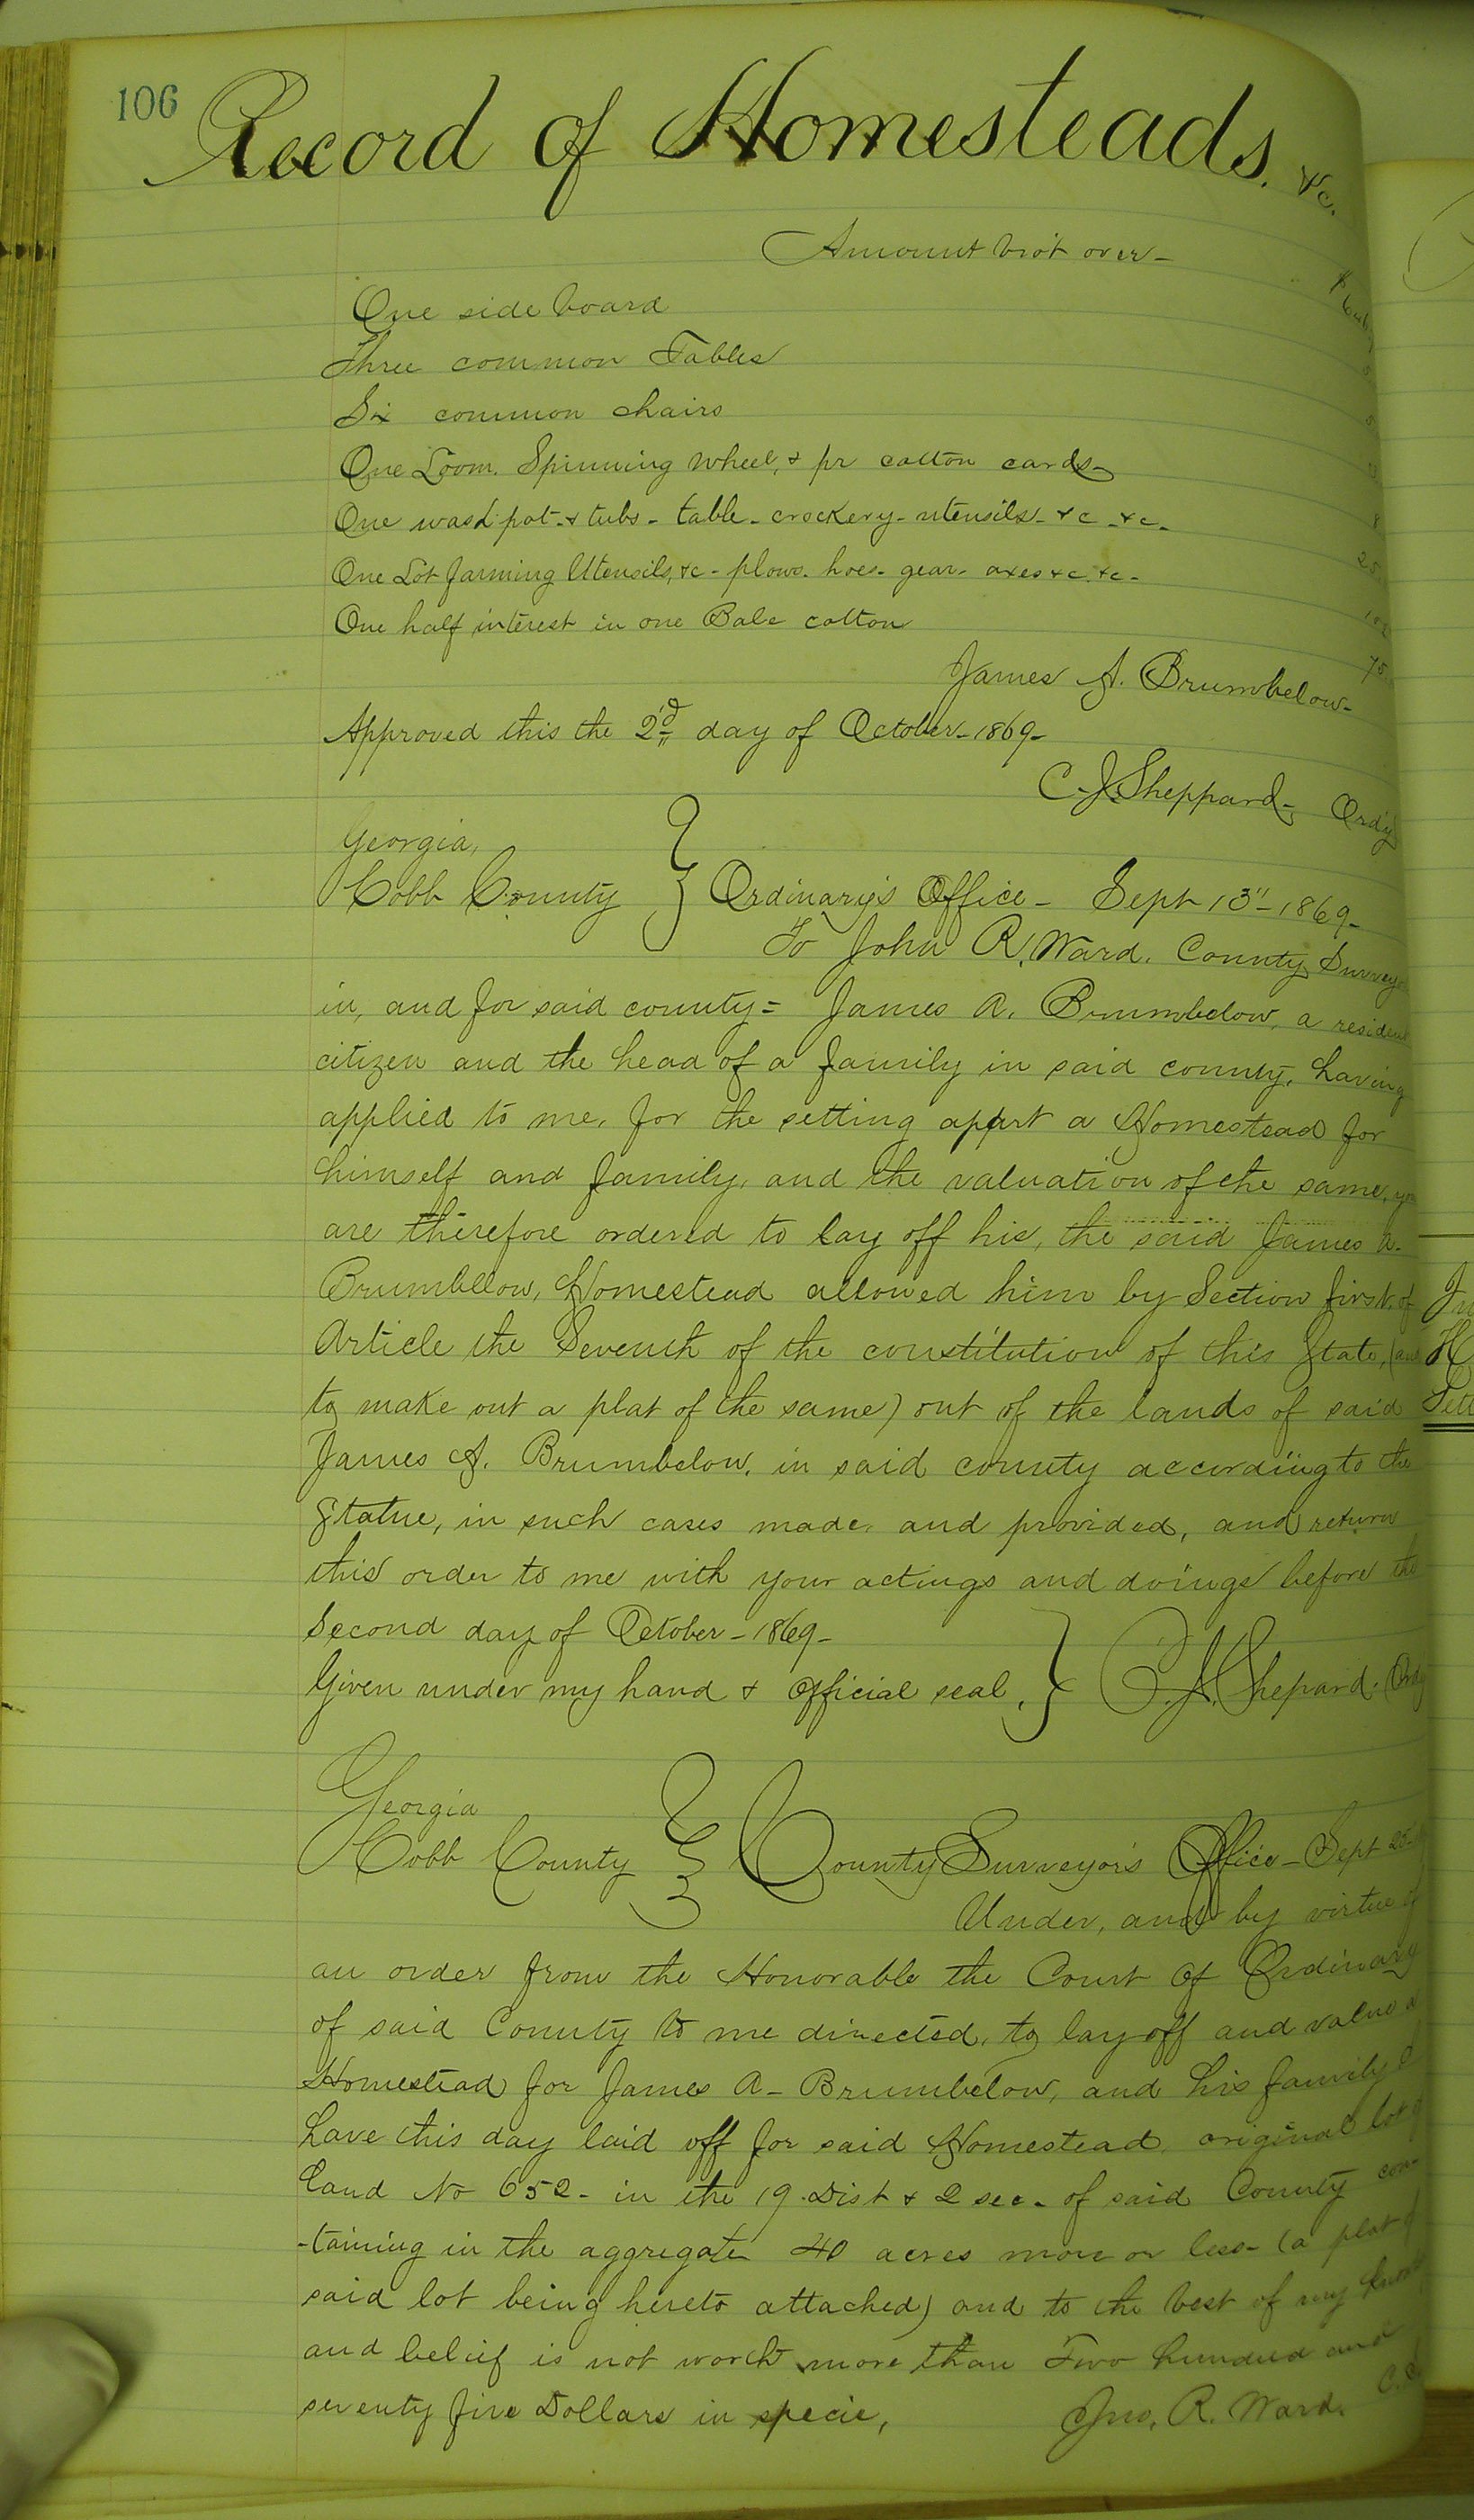 106
Record of Homesteads. &c.
Amount bro't over -
One side board
Three common Tables
Six common chairs 5
One Loom. Spinning wheel, & pr cotton cards
One wash pot - & tubs - table - crockery - utensils - &c - &c - 8
One Lot farming Utensils, &c - plows. hoes - gear - axes &c. &c - 25
One half interest in one Bale cotton
75
James A. Brumbelow -
Approved this the 2d day of October - 1869 -
C. J. Sheppard, Ordy
Georgia,
Cobb County } Ordinary's Office - Sept 13" - 1869 -
To John R. Ward. County Surveyor
in, and for said county = James A. Brumbelow, a resident
citizen and the head of a family in said county, having
applied to me, for the setting appart a Homestead for
himself and family, and the valuation of the same, you
are therefore ordered to lay off his, the said James A.
Brumbelow, Homestead allowed him by Section first, of
Article the Seventh of the constitution of this State, (and
to make out a plat of the same) out of the lands of said
James A. Brumbelow, in said county according to the
Statue, in such cases made and provided, and return
this order to me with your actings and doings before the
Second day of October - 1869 -
Given under my hand & official seal, } C. J. Shepard. Ordy
Georgia
Cobb County } County Surveyor's Office - Sept 25
Under, and by virtue of
an order from the Honorable the Court of Ordinary
of said County to me directed, to lay off and value a
Homestead for James A - Brumbelow, and his family I
have this day laid off for said Homestead, original lot of
land No 652 - in the 19. Dist & 2 sec - of said County con-
-taining in the aggregate 40 acres more or less - (a plat of
said lot being hereto attached) and to the best of my
and belief is not worth more than Two hundred and
seventy five Dollars in specie,
Jno. R. Ward. C.S.